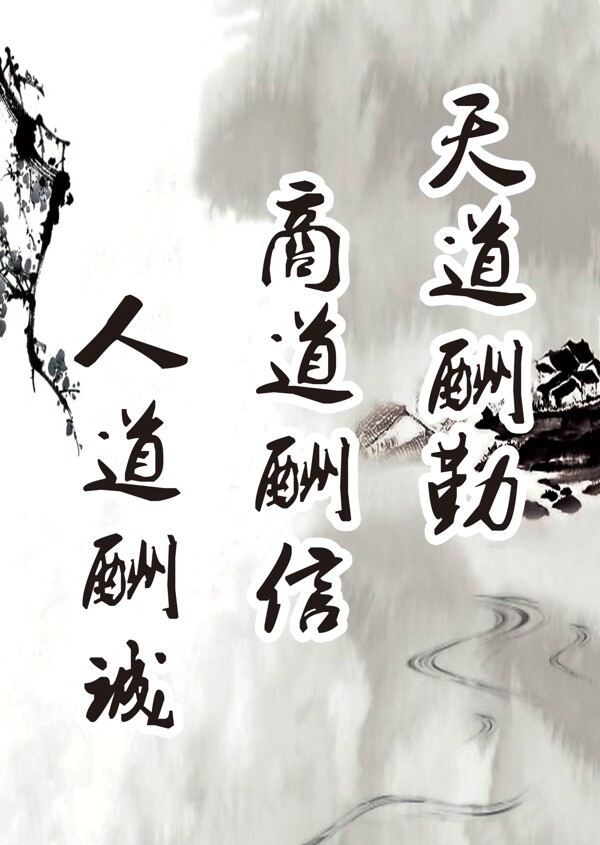 天道酬勤
商道酬信
人道酬诚